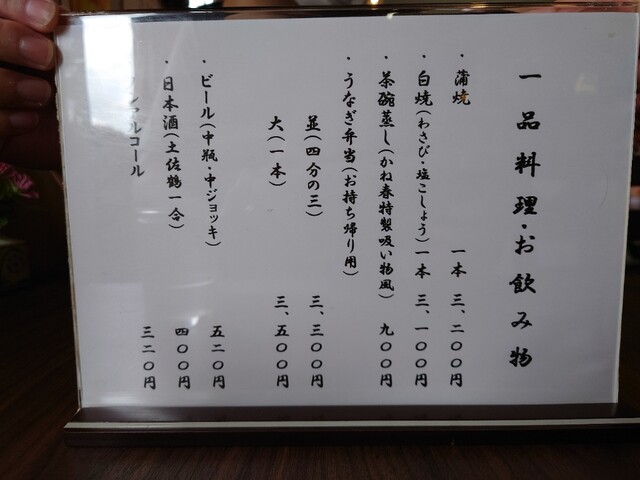 一品料理・お飲み物
・蒲焼 一本 三、二〇〇円
・白焼(わさび・塩こしょう)一本 三、一〇〇円
・茶碗蒸し(かね春特製吸い物風) 九〇〇円
・うなぎ弁当(お持ち帰り用)
並(四分の三) 三、三〇〇円
大(一本) 三、五〇〇円
・ビール(中瓶・中ジョッキ) 五二〇円
・日本酒(土佐鶴一合) 四〇〇円
ンアルコール 三二〇円